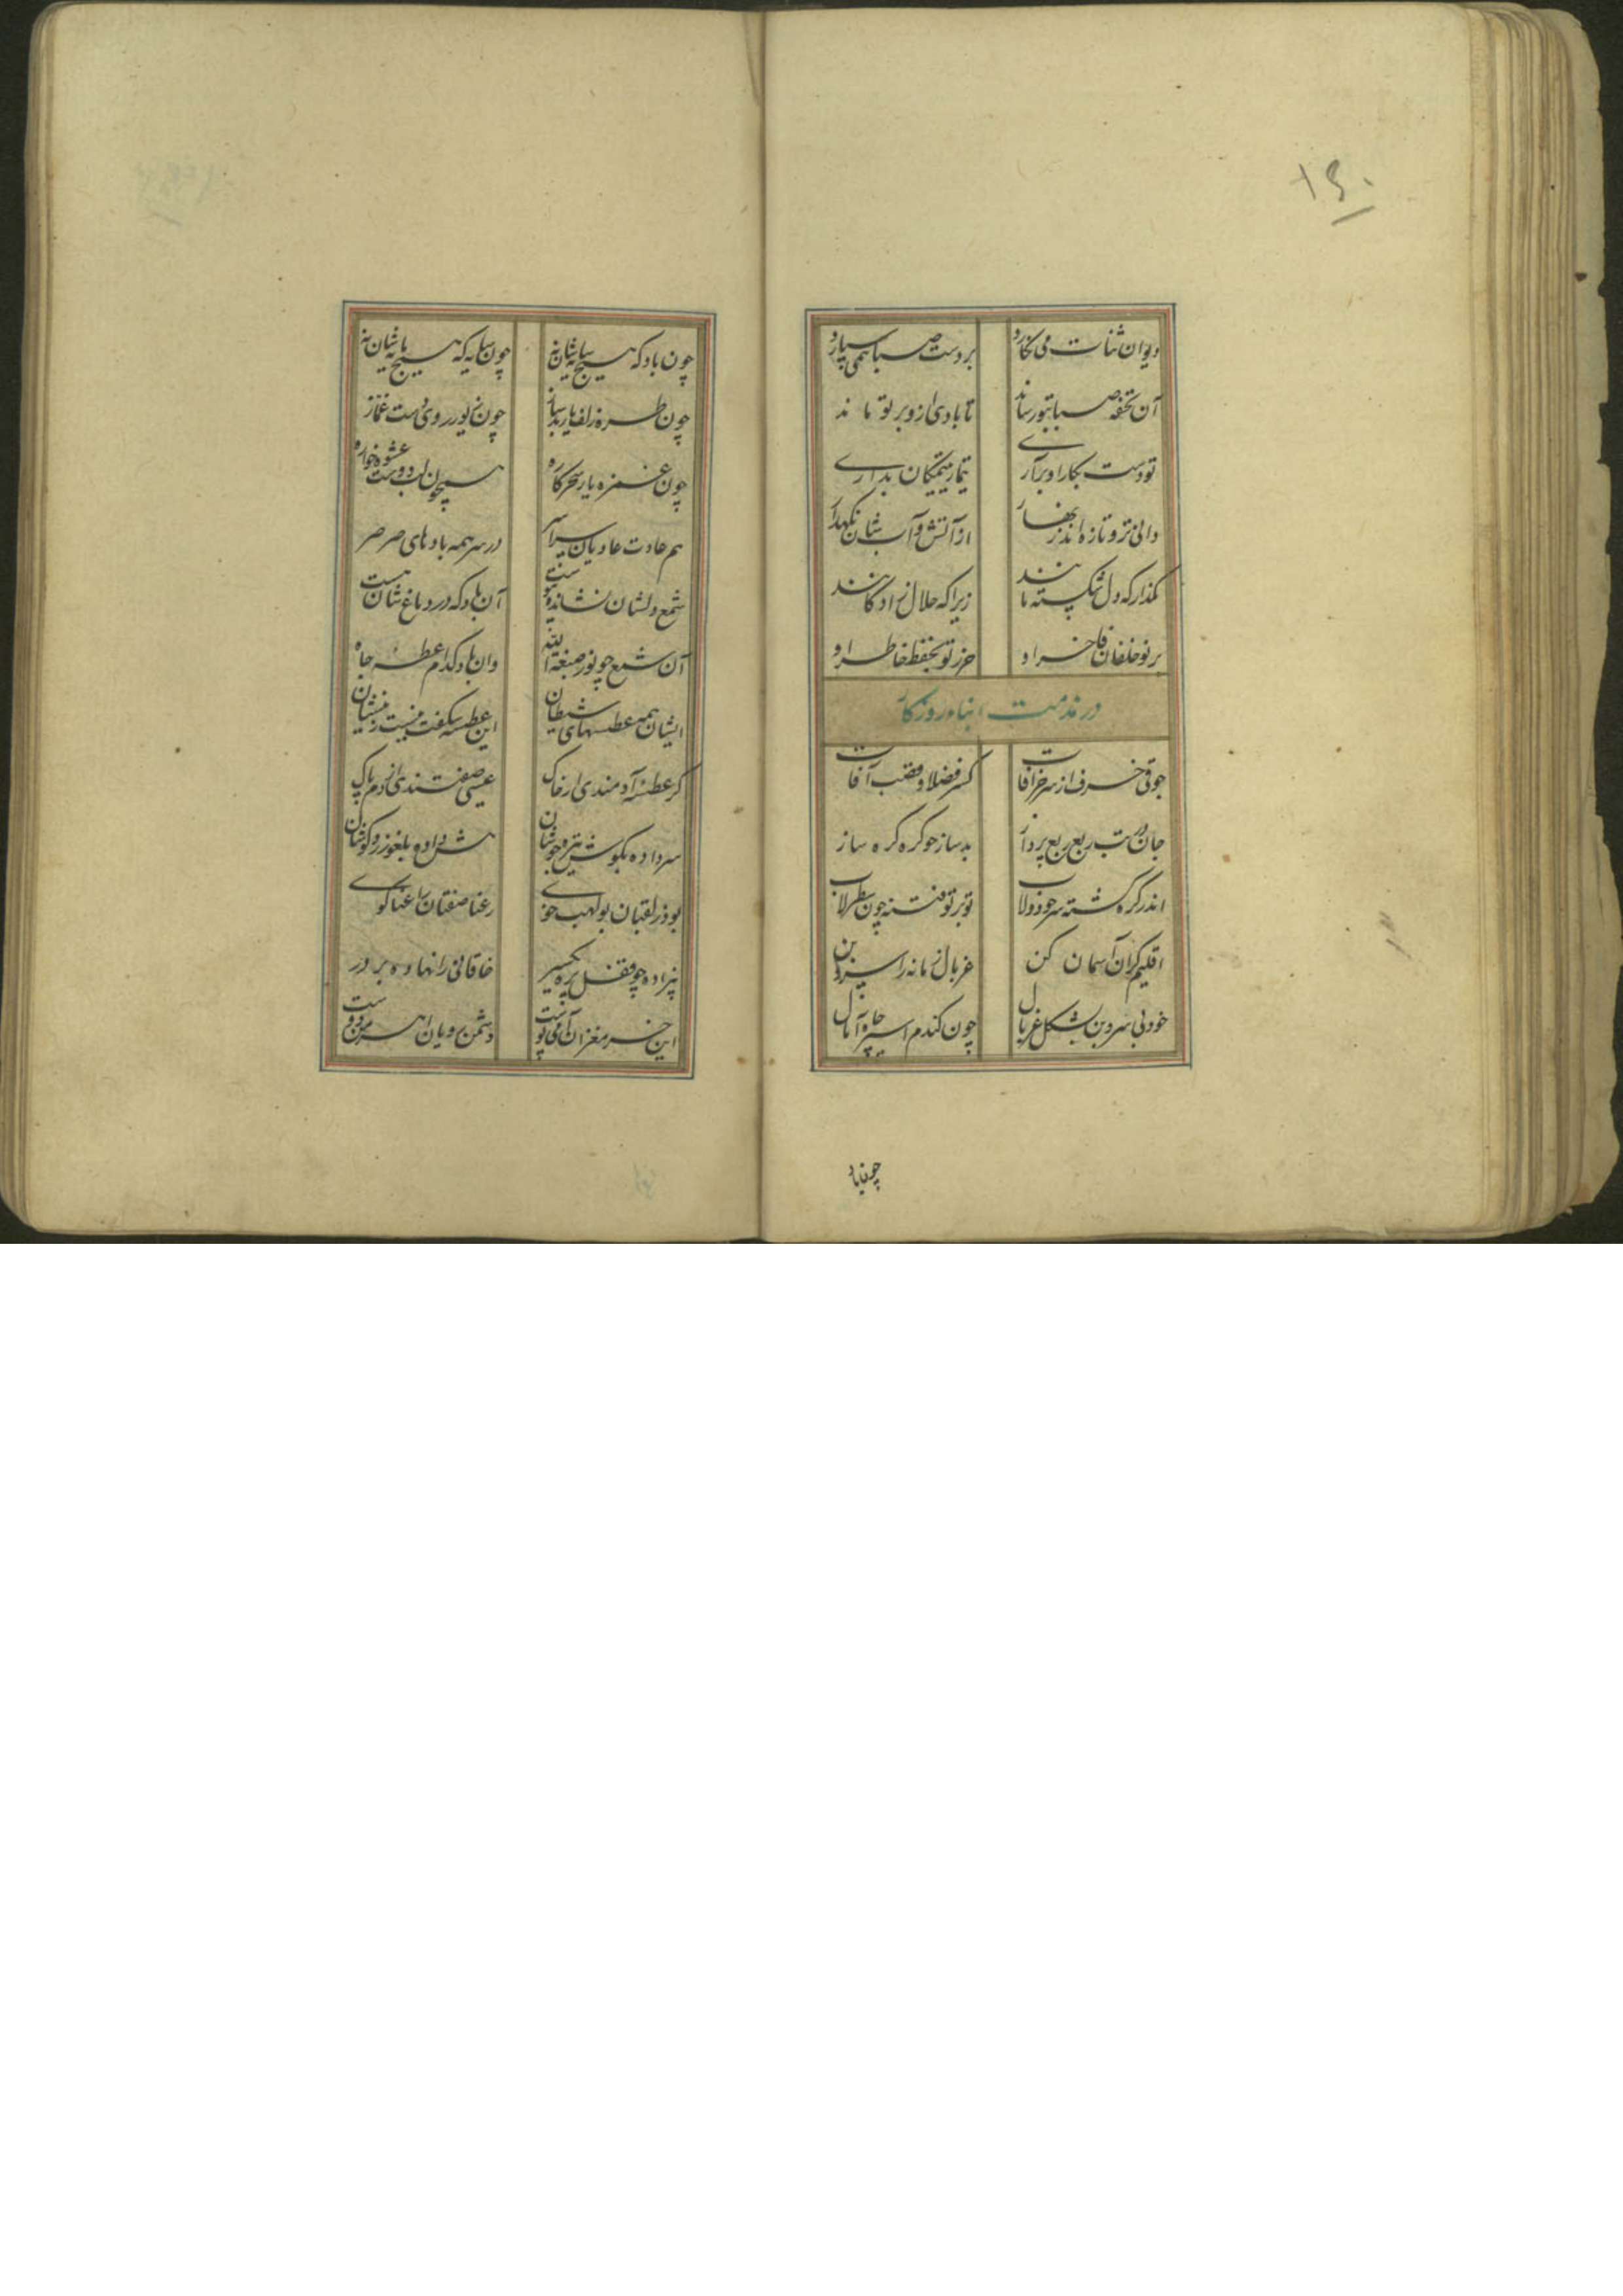 ۱۶۰
دیوان ثنات می نکارد بر دست صبا همی سپارد
آن تحفه صبا بتو رساند تا یادی ازو بر تو ماند
تو دست بکار او برآری تیمار یتیمکان بداری
دانی تر و تازه اند بنهار از آتش و آب شان نکهدار
مکذار که دل شکسته مانند زیرا که حلال زادکانند
بر تو خلفان فاخر او حرز تو بحفظ خاطر او
در مذمت ابناء روزکار
جوقی خرف از سر خرافات کسر فضلا و قصب آفات
جان در تب ربع ربع پرداز بدساز چو کره کره ساز
اندر کره کشته سر چو دولاب تو بر تو فتنه چون سطرلاب
اقلیم کران آسمان کن غربال زمانه را سر و بن
خود بی سر و بن بشکل غربال چون کندم اسیر چاه آمال
چون باد
چون باد که هیچ سایه شان نه چون سایه که هیچ پایه شان نه
چون طره زلف یار بدساز چون زیور روی دست غماز
چون غمزه یار سحرکاره همچون لب دوست عشوه خواره
هم عادت عادیان سراسر در سر همه بادهای صرصر
شمع دلشان نشانده پیوست آن باد که در دماغ شان هست
آن شمع چو نور صبغة الله وان باد کدام عطسه جاه
ایشان همه عطسهای شیطان این عطسه شکفت نیست زیشان
کر عطسه آدمندی از خاک عیسی صفتندی از دم پاک
سر داده بکوش تیره جوشان هش داده بلغو زر و کوشان
بوذر لقبان بولهب خوی رعنا صفتان راعنا کوی
پر داده چو قفل پره یکسر خاقانی را نهاده بر در
این خر مغزان آدمی پوست دشمن رویان اهرمن دوست